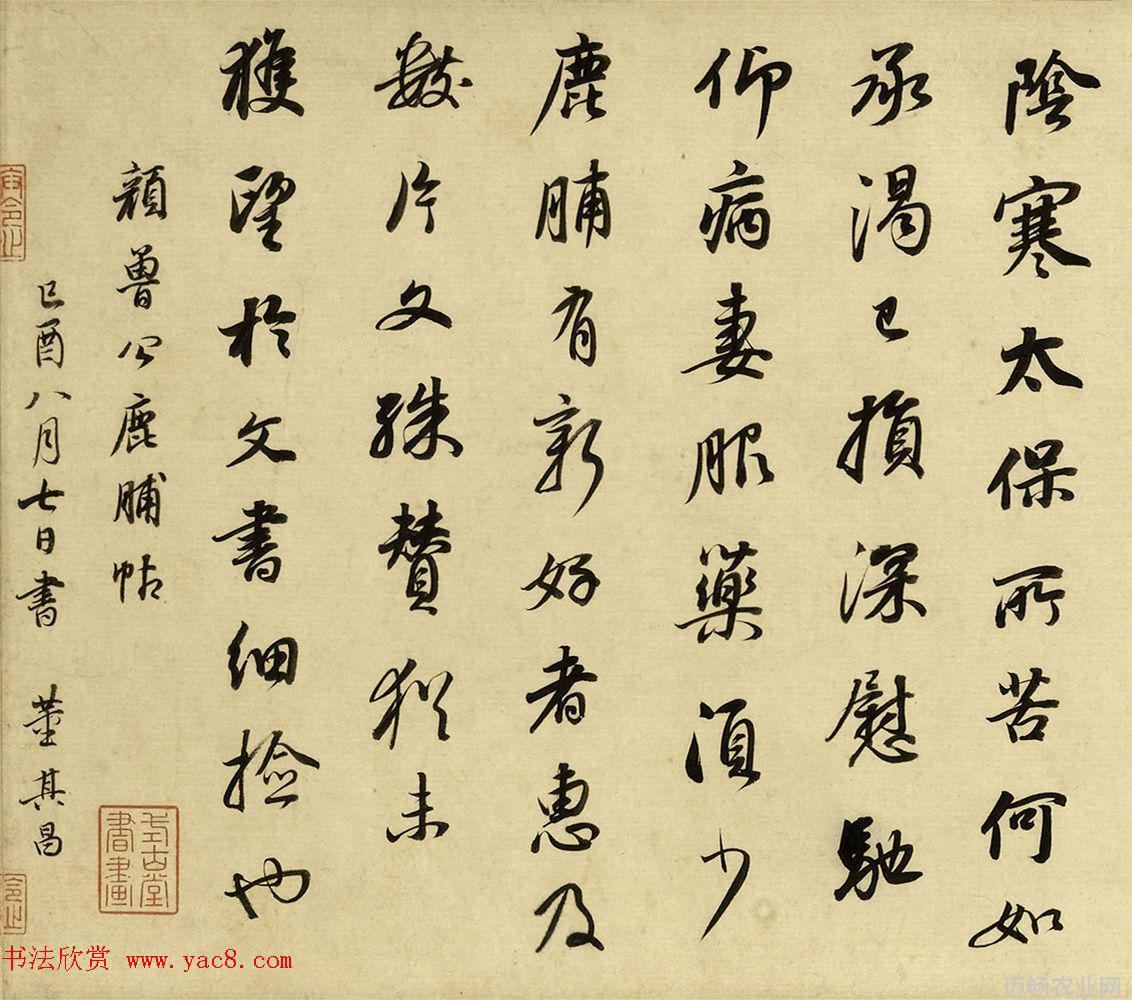 陰寒太保所苦何如
承渴已損深慰馳
仰病妻服藥須少
鹿脯有新好者惠及
數片文殊贊猶未
獲望於文書細撿也
顏魯公鹿脯帖
己酉八月七日書 董其昌
書法欣赏 www.yac8.com
迈畅农业网